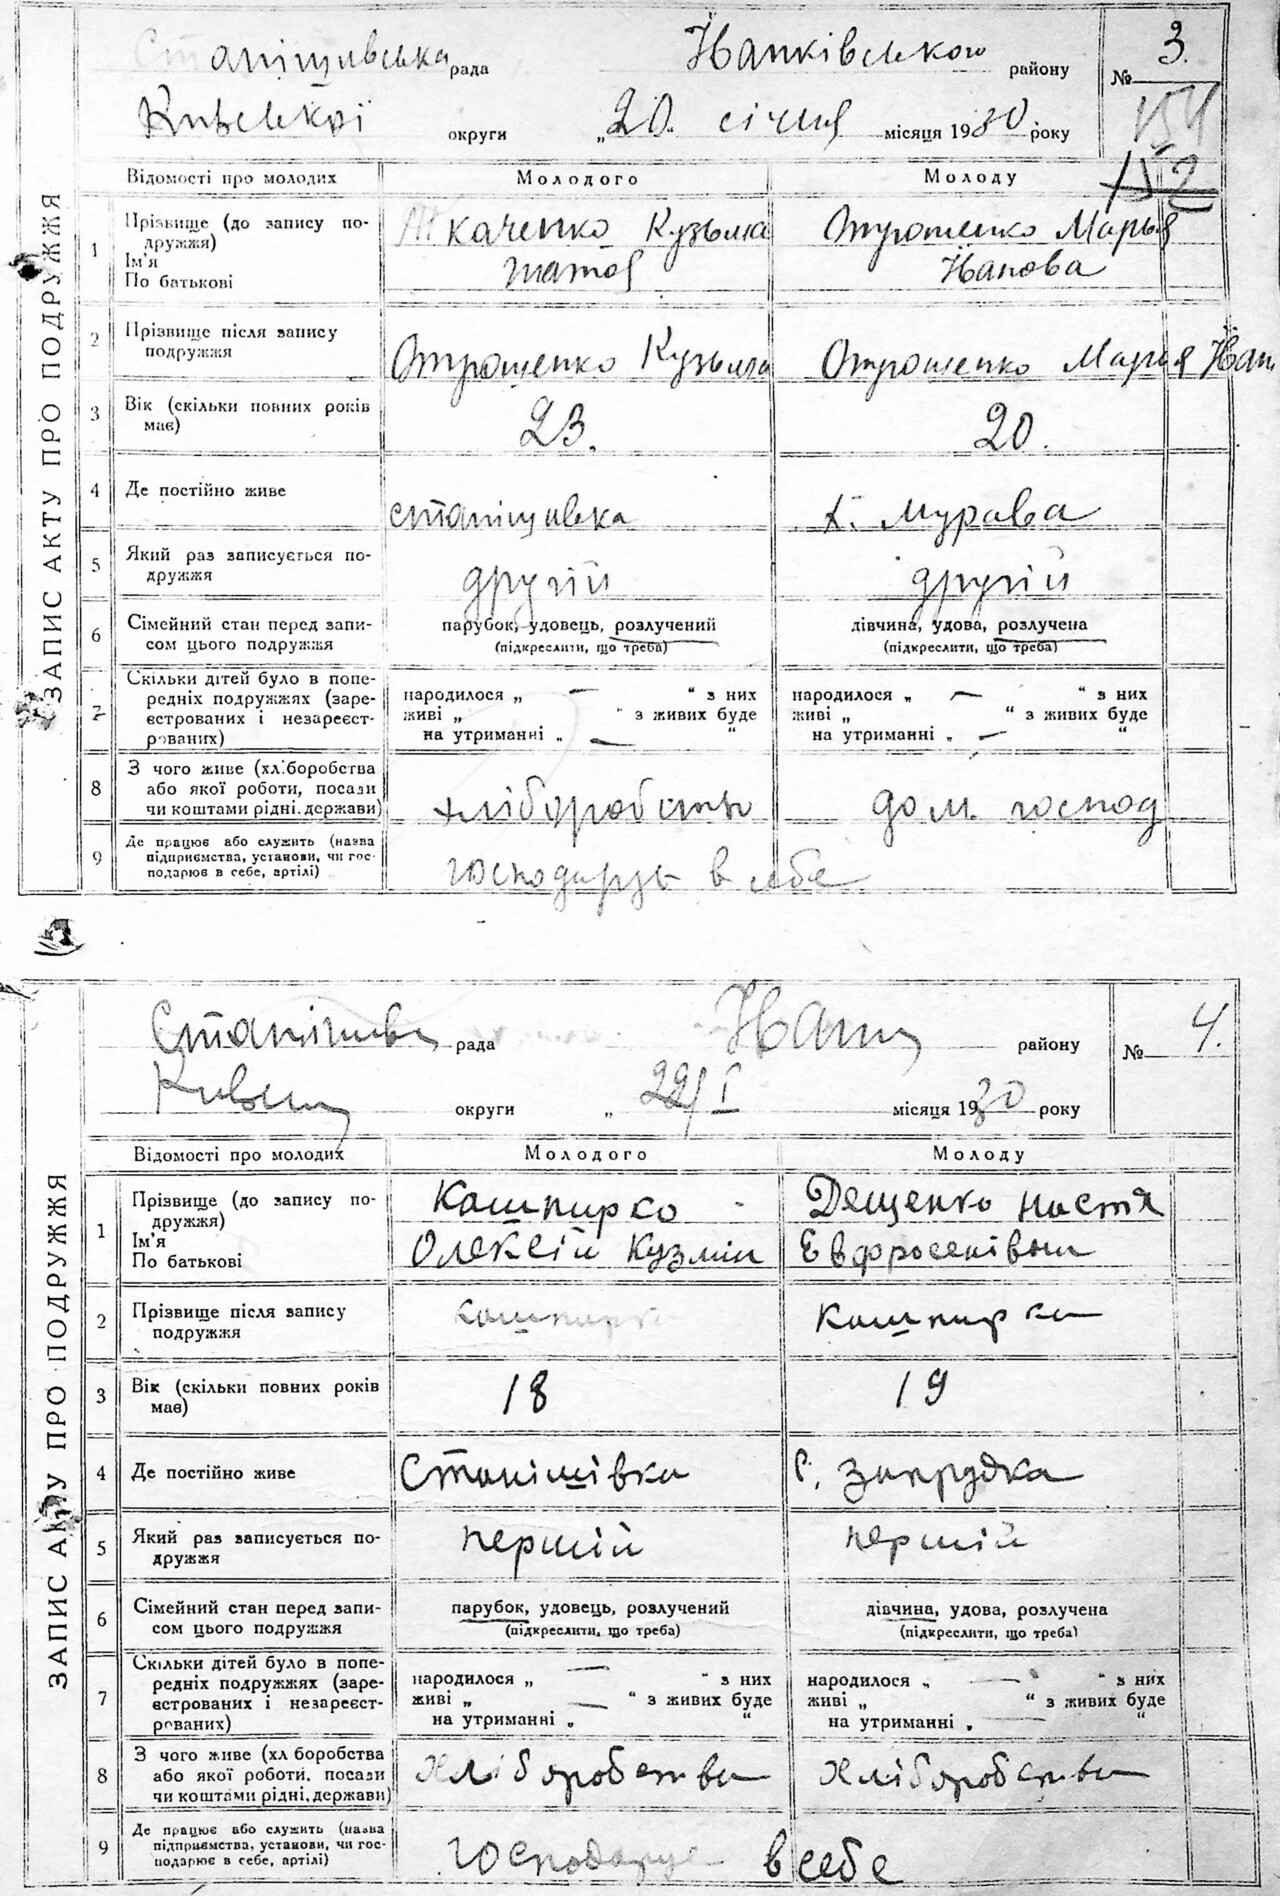 Станішивська рада Іванківського району № 3.
Київської округи „20. січня місяця 1930 року
154
152
Відомості про молодих Молодого Молоду
ЗАПИС АКТУ ПРО ПОДРУЖЖЯ
1 Прізвище (до запису по- Ткаченко Кузьма Отрошенко Марья
дружжя)
Ім'я Іванова
По батькові
2 Прізвище після запису
подружжя Отрошенко Кузьма Отрошенко Марья Іван
3 Вік (скільки повних років
має) 23. 20.
4 Де постійно живе станішивка х. Мурава
5 Який раз записується по-
дружжя другій другій
6 Сімейний стан перед запи- парубок, удовець, розлучений дівчина, удова, розлучена
сом цього подружжя (підкреслити, що треба) (підкреслити, що треба)
Скільки дітей було в попе-
7 редніх подружжях (заре- народилося „ — “ з них народилося „ — “ з них
єстрованих і незареєст- живі „ “ з живих буде живі „ “ з живих буде
рованих) на утриманні „ — “ на утриманні „ — “
З чого живе (хліборобства
8 або якої роботи, посади
чи коштами рідні, держави) хліборобство дом. господ
9 Де працює або служить (назва
підприємства, установи, чи гос-
подарює в себе, артілі) в себе
Станішивс рада Іванк району № 4.
округи „ 22/I місяця 1930 року
Відомості про молодих Молодого Молоду
ЗАПИС АКТУ ПРО ПОДРУЖЖЯ
1 Прізвище (до запису по- Кашпирко Дещенко Настя
дружжя)
Ім'я Олексій Кузмін
По батькові
2 Прізвище після запису Кашпирко Кашпирко
подружжя
3 Вік (скільки повних років 18 19
має)
4 Де постійно живе Станішівка С. Запрудка
5 Який раз записується по- першій першій
дружжя
6 Сімейний стан перед запи- парубок, удовець, розлучений дівчина, удова, розлучена
сом цього подружжя (підкреслити, що треба) (підкреслити, що треба)
Скільки дітей було в попе-
7 редніх подружжях (заре- народилося „ — “ з них народилося „ — “ з них
єстрованих і незареєст- живі „ — “ з живих буде живі „ — “ з живих буде
рованих) на утриманні „ “ на утриманні „ “
З чого живе (хліборобства
8 або якої роботи, посади Хліборобства Хліборобства
чи коштами рідні, держави)
9 Де працює або служить (назва
підприємства, установи, чи гос- господарує в себе
подарює в себе, артілі)